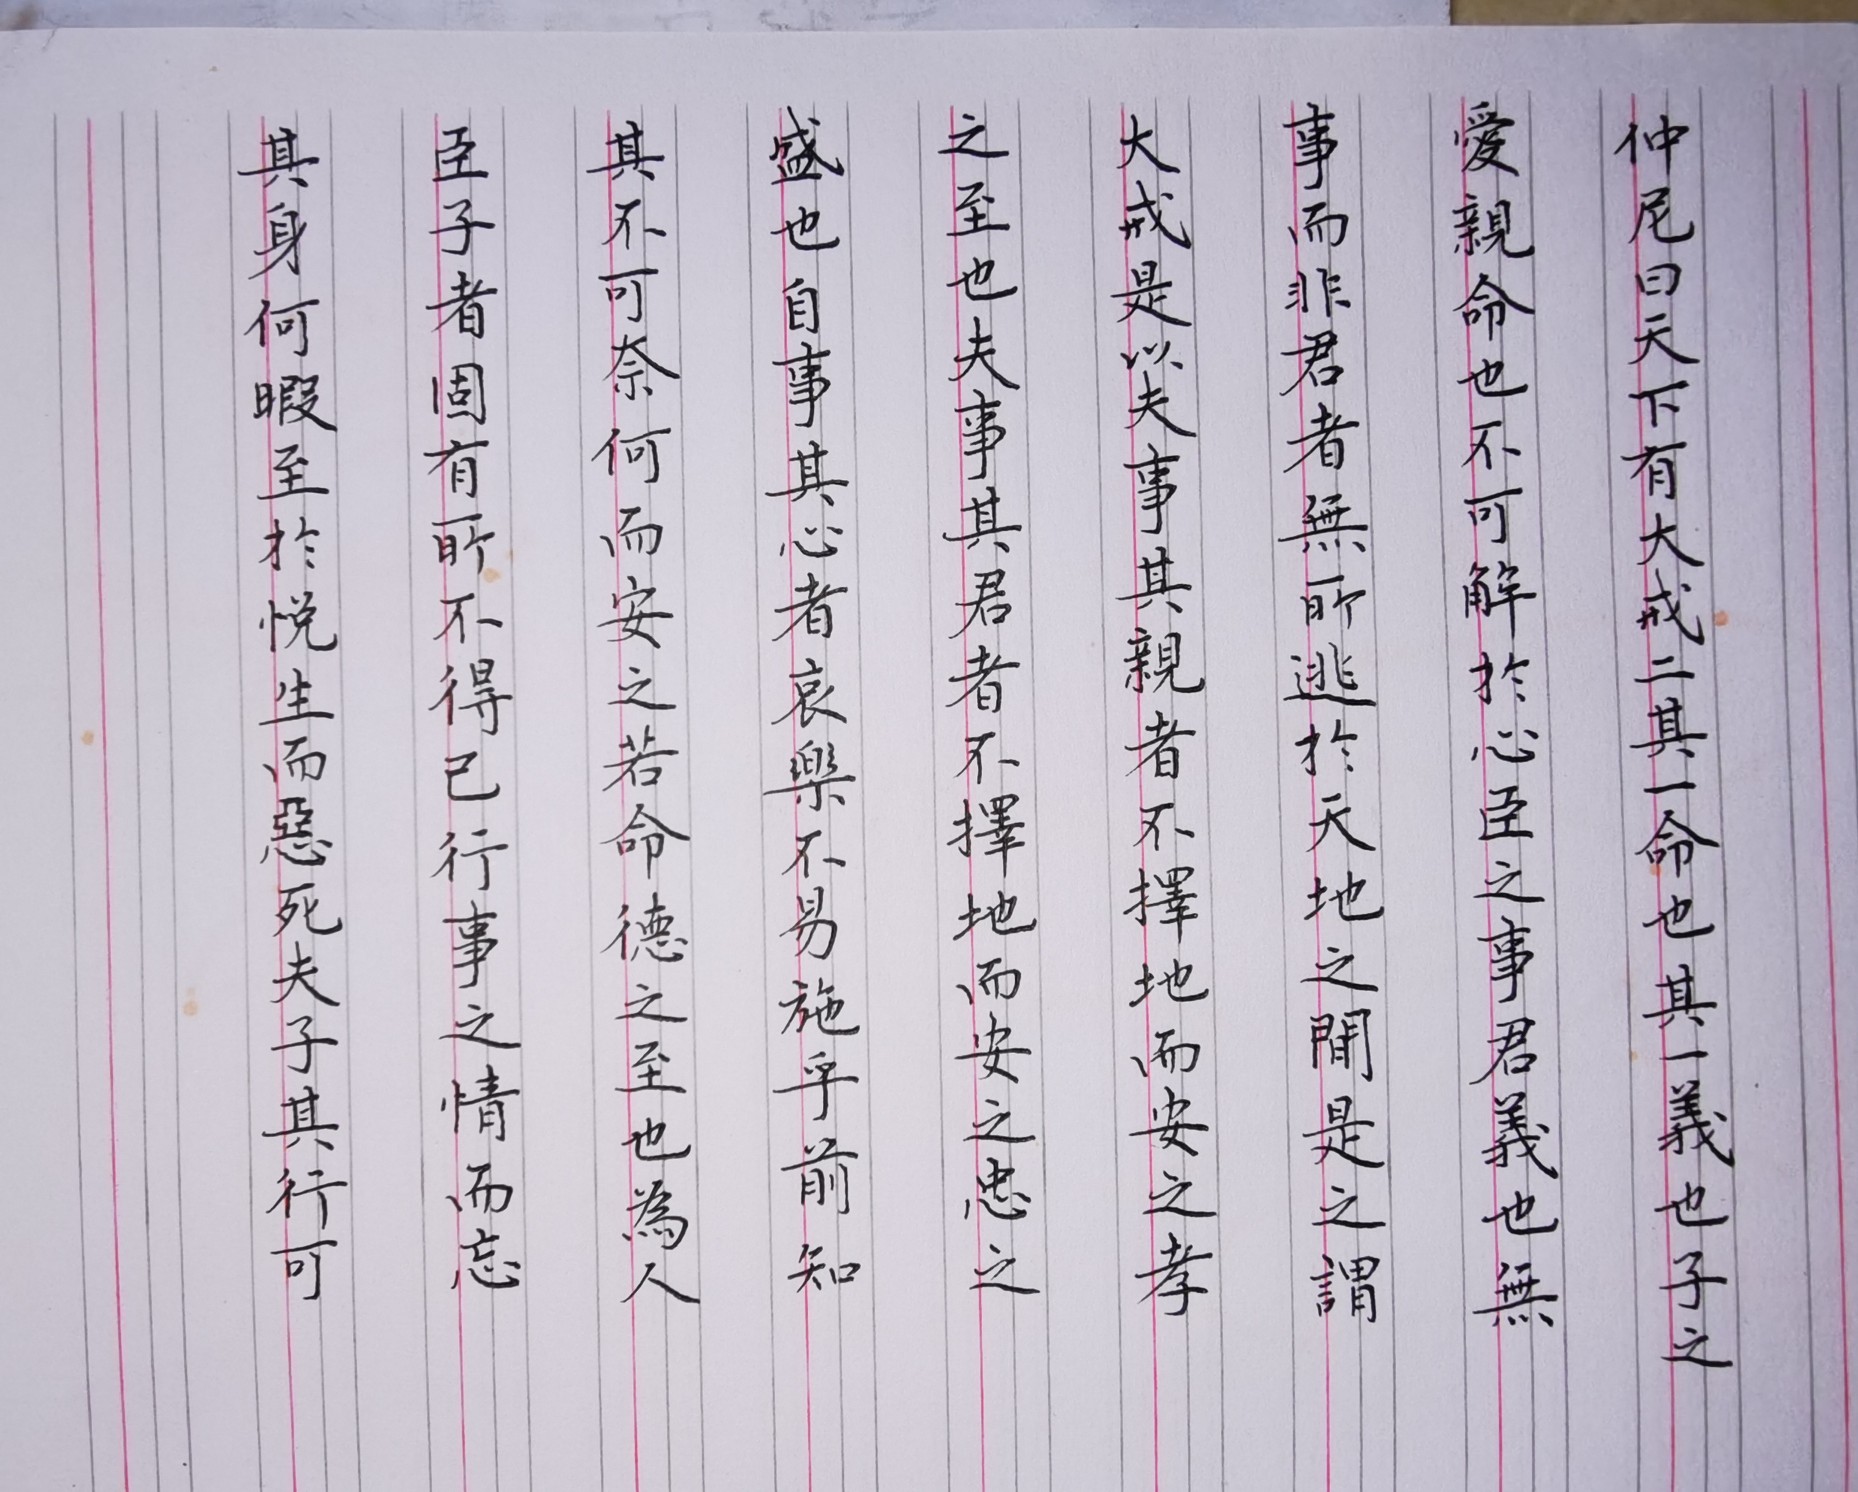 仲尼曰天下有大戒二其一命也其一義也子之
愛親命也不可解於心臣之事君義也無
事而非君者無所逃於天地之間是之謂
大戒是以夫事其親者不擇地而安之孝
之至也夫事其君者不擇地而安之忠之
盛也自事其心者哀樂不易施乎前知
其不可奈何而安之若命德之至也為人
臣子者固有所不得已行事之情而忘
其身何暇至於悦生而惡死夫子其行可